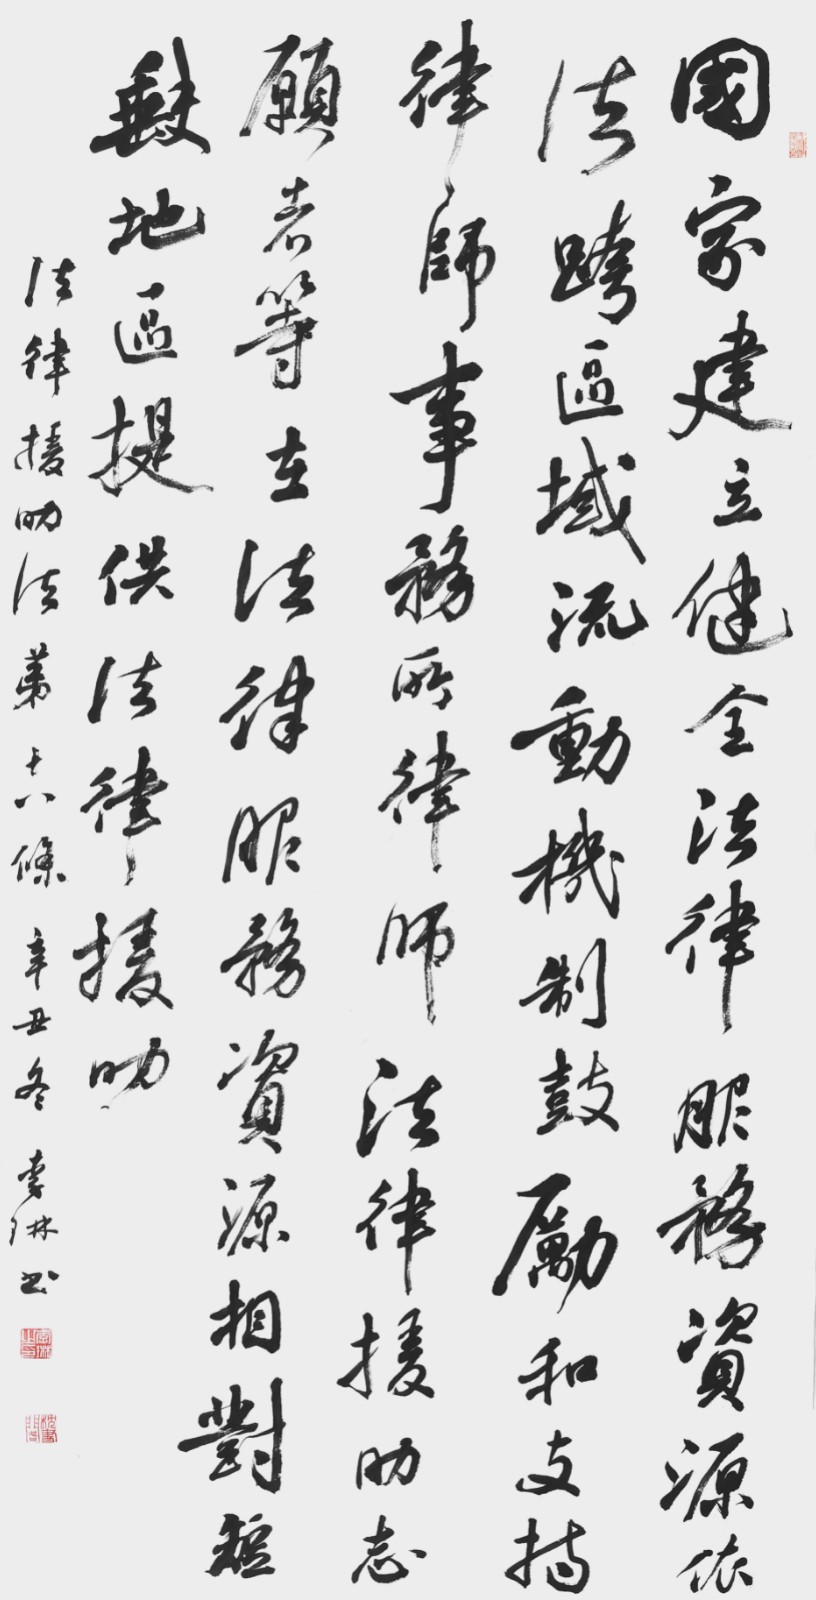 國家建立健全法律服務資源依
法跨區域流動機制鼓勵和支持
律師事務所律師法律援助志
願者等在法律服務資源相對短
缺地區提供法律援助
法律援助法第十八條 辛丑冬 李琳書